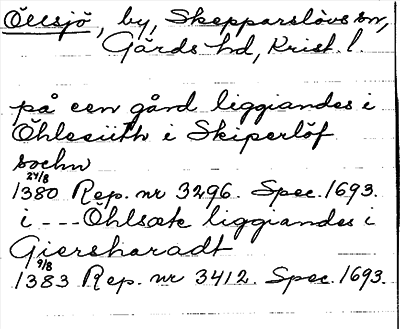 Öllsjö, by, Skepparslövs sn,
Gärds hd, Krist. l.
på een gård liggiandes i
Öhlesiith i Skiperlöf
sochn
24/8
1380 Rep. nr 3296. Spec. 1693.
i --- Öhlsæte liggiandes i
Giersharadt
9/8
1383 Rep. nr 3412. Spec. 1693.